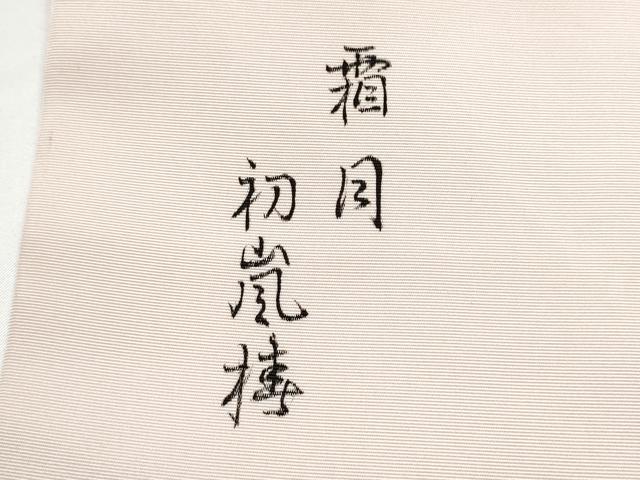 霜月
初嵐椿